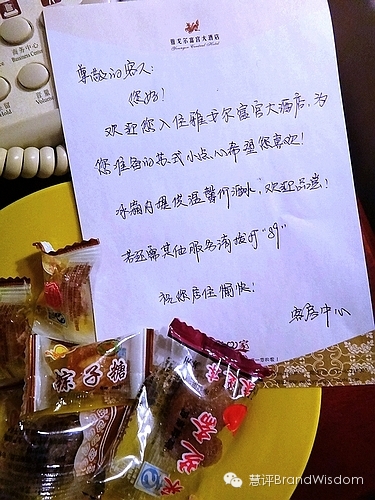 商务中心
Business Centre
音量
雅戈尔富宫大酒店
Youngor Central Hotel
尊敬的客人:
您好!
欢迎您入住雅戈尔富宫大酒店,为
您准备的苏式小点心希望您喜欢!
冰箱内提供温馨价酒水,欢迎品尝!
若还需其他服务请拨打"89"
祝您居住愉快!
客房中心
粽子糖
慧评BrandWisdom